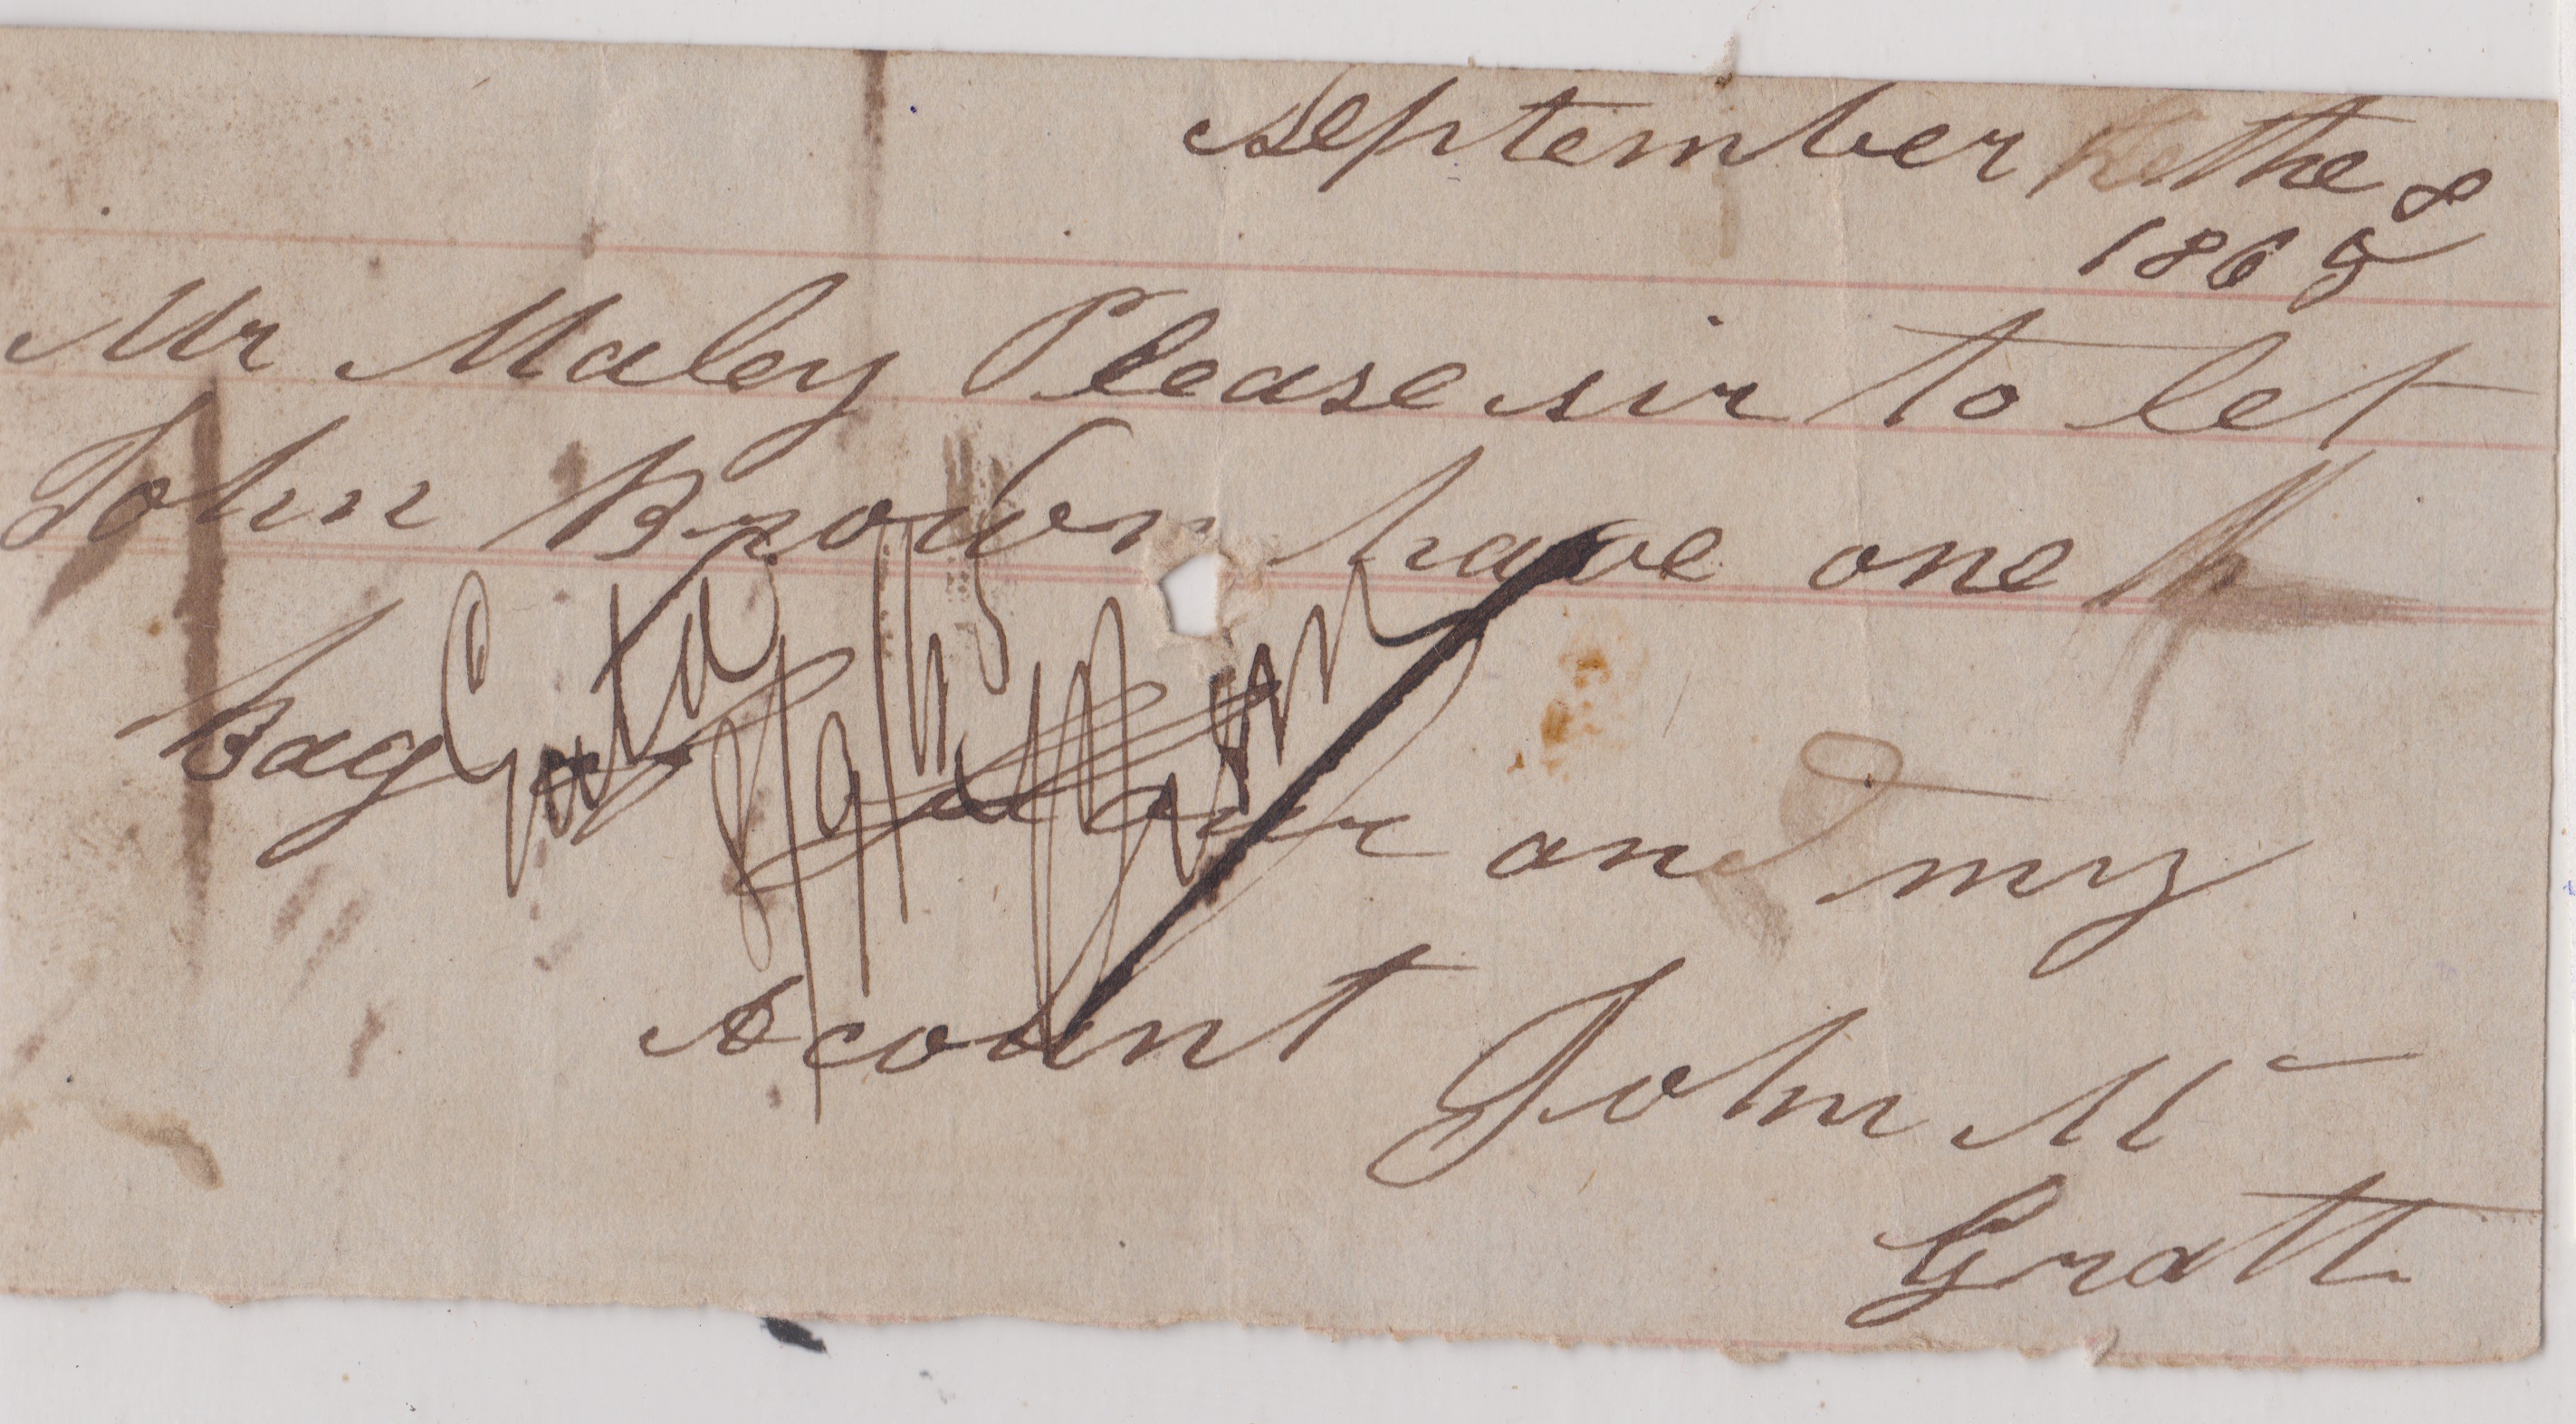 September the 8
186
Mr Maley Please sir to let
John Brown have one
Bag and my
Acount
John Mc
Gratt